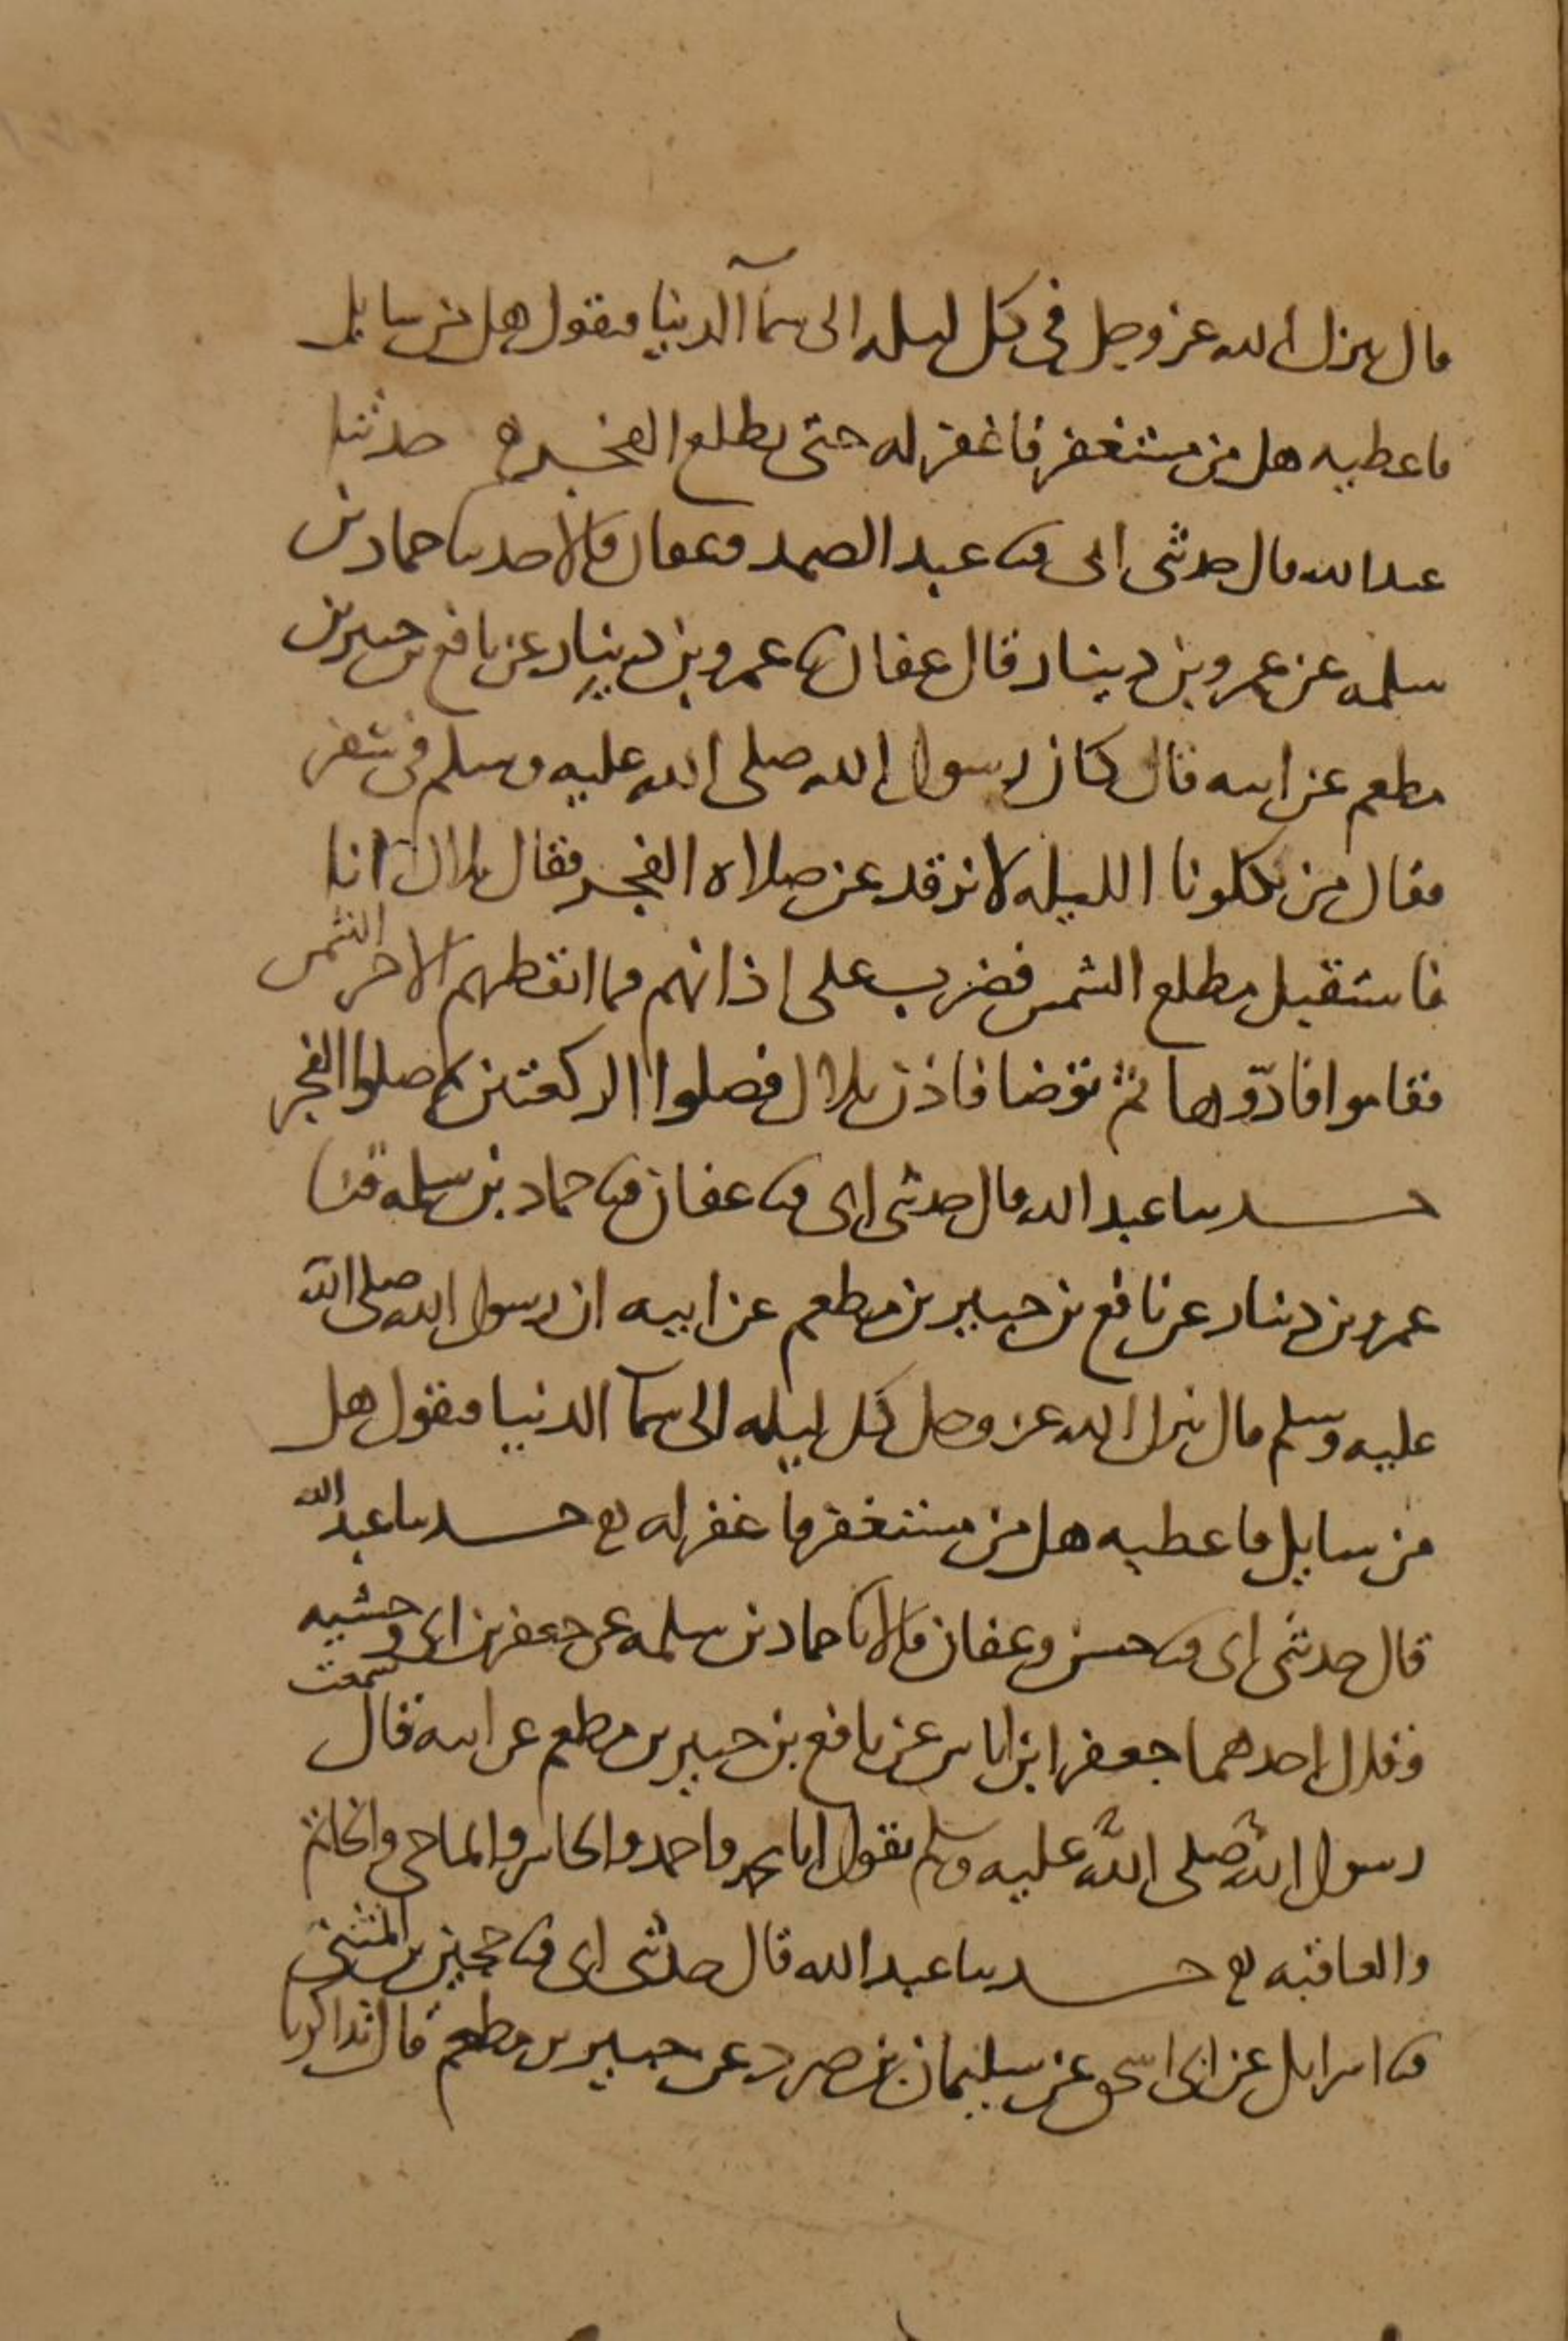 قال ينزل الله عز وجل في كل ليله الى سمآ الدنيا فيقول هل من سايل
فاعطيه هل من مستغفر فاغفر له حتى يطلع الفجر ه حدثنا
عبد الله قال حدثني ابي ثنا عبد الصمد وعفان قالا حدثنا حماد بن
سلمه عن عمرو بن دينار قال عفان ثنا عمرو بن دينار عن نافع بن جبير بن
مطعم عن ابيه قال كان رسول الله صلى الله عليه وسلم في سفر
فقال من يكلونا الليله لا نرقد عن صلاه الفجر فقال بلال انا
فاستقبل مطلع الشمس فضرب على اذانهم فما ايقظهم الا حر الشمس
فقاموا فادّوها ثم توضا فاذن بلال فصلوا الركعتين ثم صلوا الفجر
حدثنا عبد الله قال حدثني ابي ثنا عفان ثنا حماد بن سلمه ثنا
عمرو بن دينار عن نافع بن جبير بن مطعم عن ابيه ان رسول الله صلى الله
عليه وسلم قال ينزل الله عز وجل كل ليله الى سمآ الدنيا فيقول هل
من سايل فاعطيه هل من مستغفر فاغفر له ه حدثنا عبد الله
قال حدثني ابي ثنا حسن وعفان قالا ثنا حماد بن سلمه عن جعفر بن ابي وحشيه
وقال احدهما جعفر ابن اياس عن نافع بن جبير بن مطعم عن ابيه قال سمعت
رسول الله صلى الله عليه وسلم يقول انا محمد واحمد والحاشر والماحي والخاتم
والعاقبه ه حدثنا عبد الله قال حدثني ابي ثنا حجين بن المثنى
ثنا اسرايل عن ابي اسحق عن سليمان بن صرد عن جبير بن مطعم قال تذاكرنا